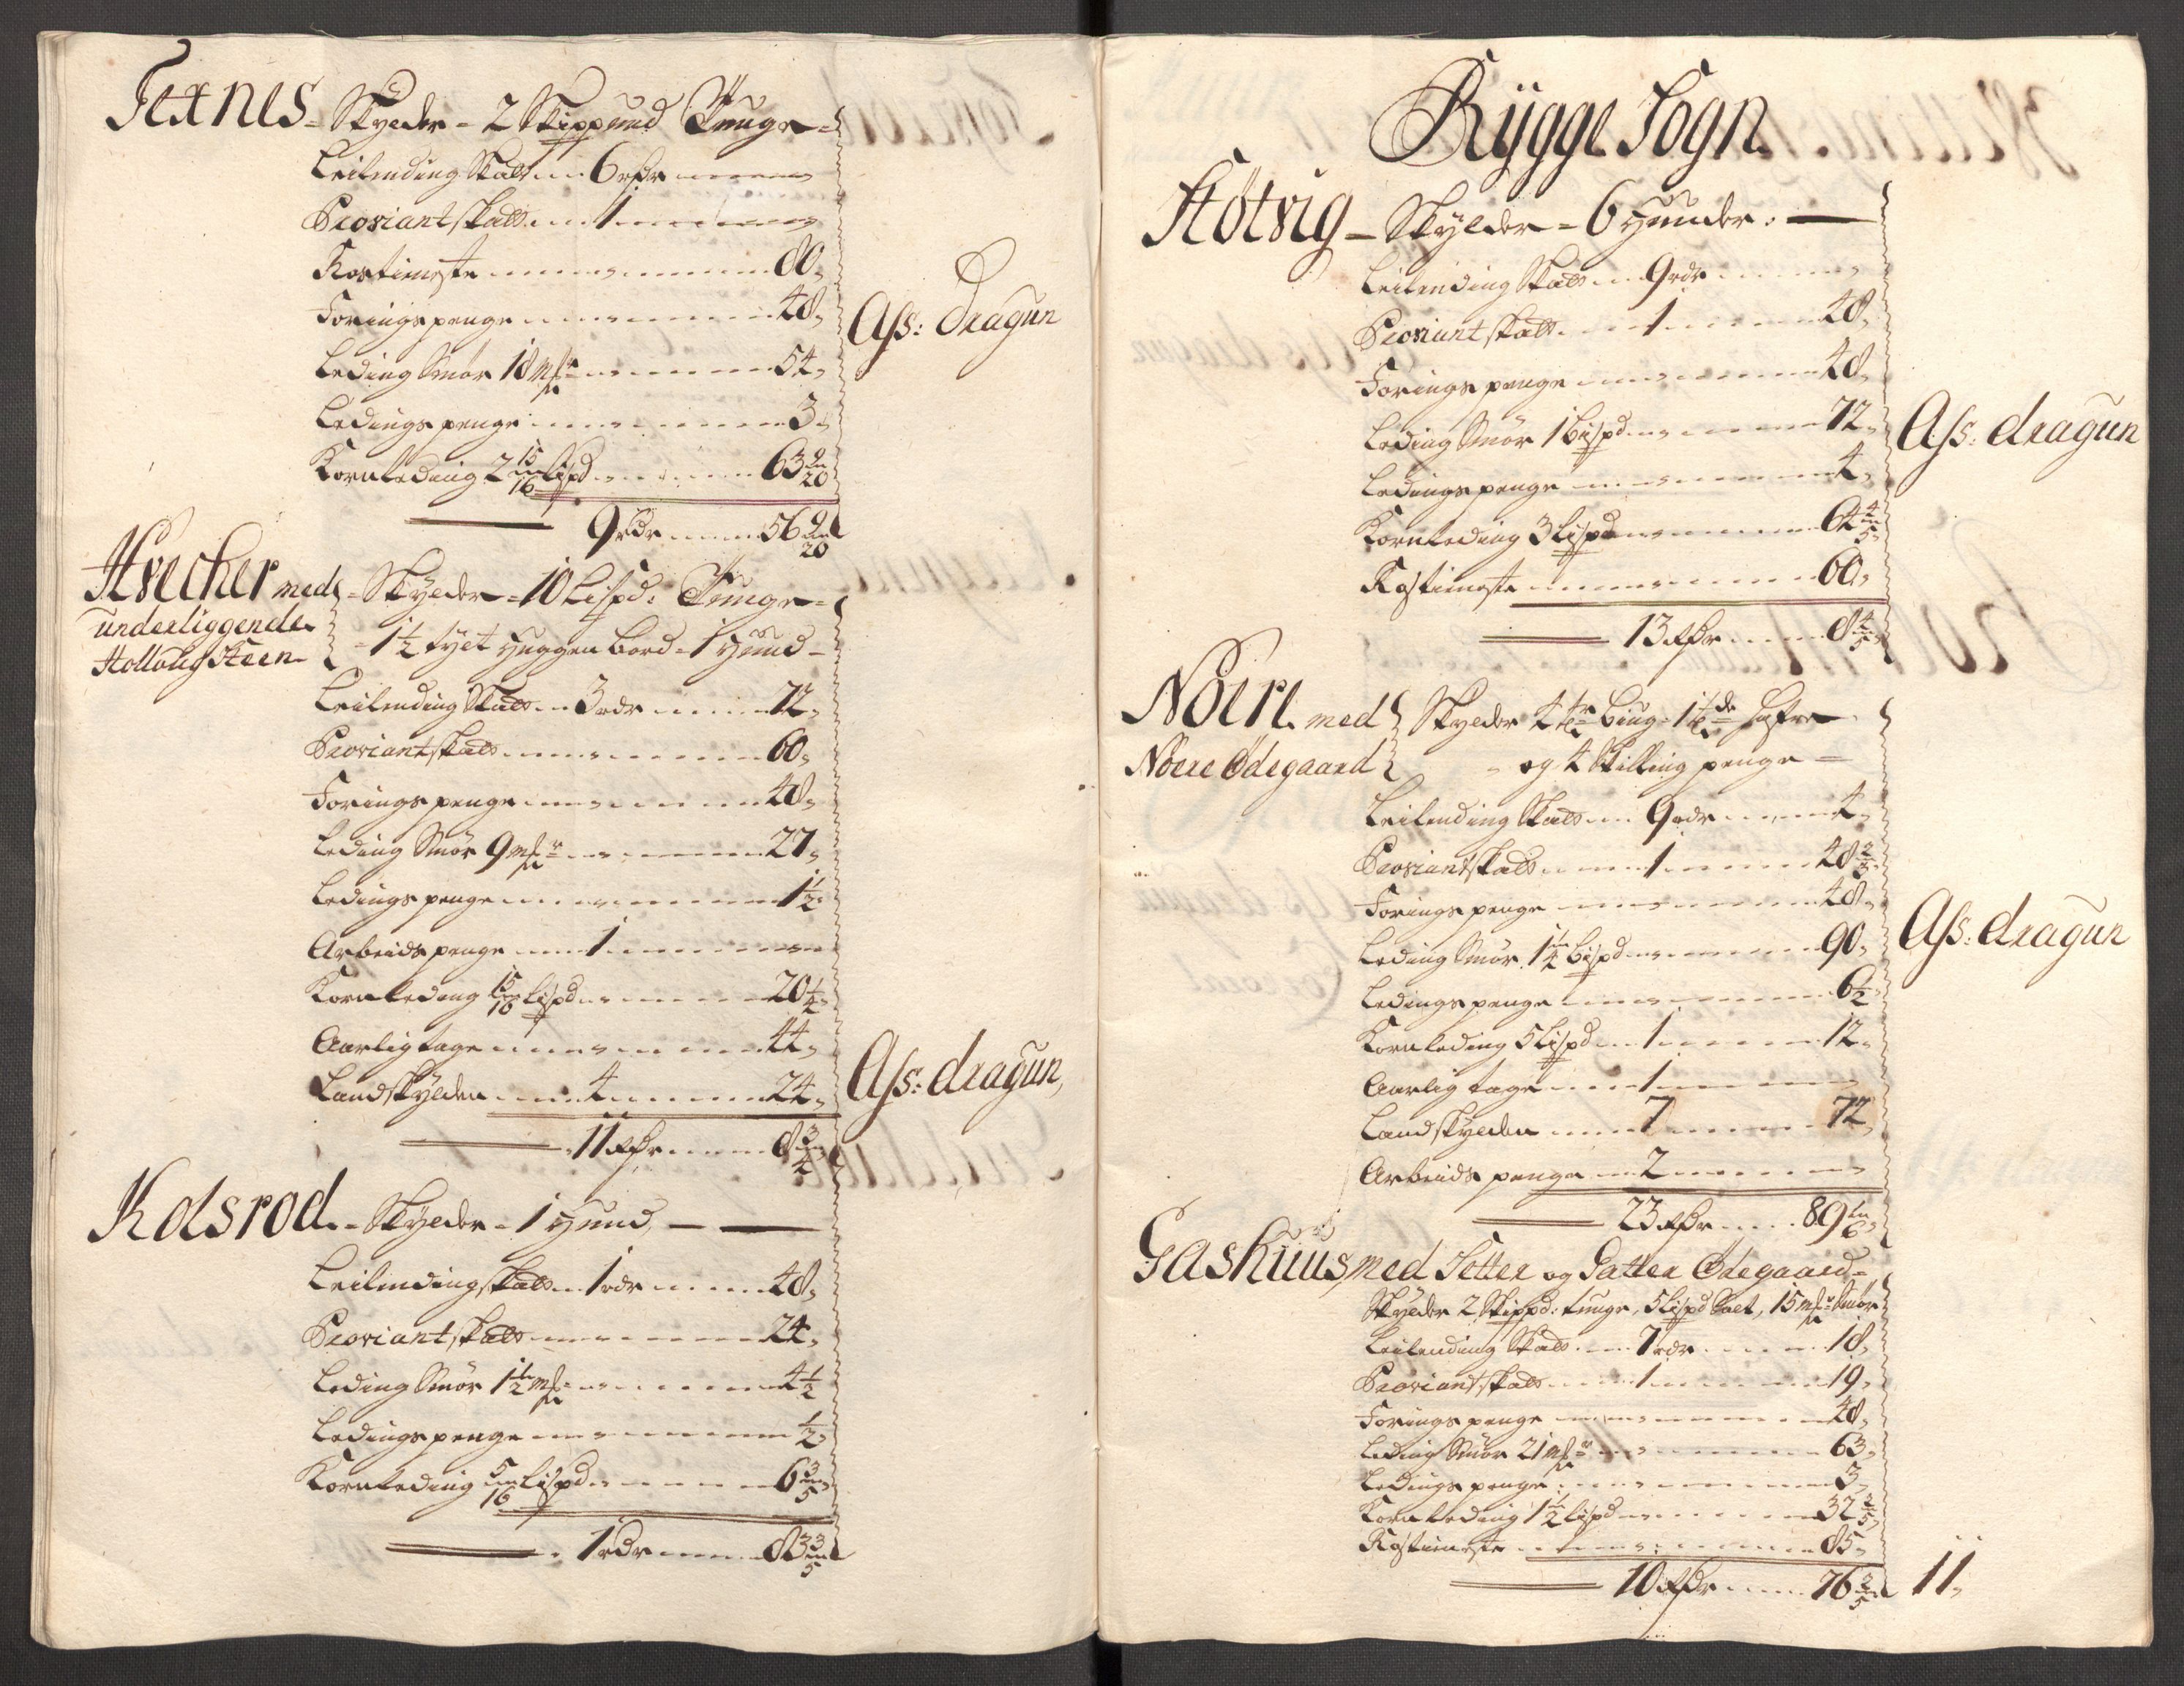 Texnes - Skylder - 2 Skippund Tunge -
Leilending Skatt ... 6 rdr
Proviantskatt ... 1
Kostimeste ... 80
Foringspenge ... 48
Leding Smør 18 mkr ... 54
Ledingspenge ... 3
Kornleding 2 15/16 Lispd ... 63 9/20
9 rdr ... 56 9/20
Ass: dragun
Huecher med - Skylder - 10 Lispd: Tunge -
underliggende
Hollougsteen - 1 1/2 tyet Huggen Bord - 1 Hund -
Leilending Skatt ... 3 rdr ... 72
Proviantskatt ... 60
Foringspenge ... 48
Leding Smør 9 mkr ... 27
Ledingspenge ... 1 1/2
Arbeidspenge ... 1
Kornleding 15/16 Lispd ... 20 1/4
Aarligtage ... 44
Landskylden ... 4 ... 24
11 rdr ... 8 3/4
Ass: dragun,
Kolsrod - Skylder - 1 Hund, -
Leilendingskatt ... 1 rdr ... 48
Proviantskatt ... 24
Leding Smør 1 1/2 mk ... 4 1/2
Ledingspenge ... 1/2
Kornleding 5/16 Lispd ... 6 3/5
1 rdr ... 83 3/5
Rÿgge Sogn
Støtvig - Skylder - 6 Hunder: -
Leilending Skatt ... 9 rdr
Proviantskatt ... 1 ... 48
Foringspenge ... 48
Leding Smør 1 Bispd ... 72
Ledingspenge ... 4
Kornleding 3 Lispd ... 64 4/5
Kostimeste ... 60
13 rdr ... 8 4/5
Ass: dragun
Nöire med Skylder 4 tr Biug - 1 tde Hafre
Nöere Ødegaard - og 4 Skilling penge -
Leilending Skatt ... 9 rdr ... 4
Proviantskatt ... 1 ... 48 2/3
Foringspenge ... 48
Leding Smør 1 1/4 Bispd ... 90
Ledingspenge ... 6 1/2
Kornleding 5 Lispd ... 1 ... 12
Aarlig tage ... 1
Landskylden ... 7 ... 72
Arbeids penge ... 2
23 rdr ... 89 1/6
Ass: dragun
Gashuus, med Setter og Satter Ødegaard -
Skylder 2 Skippd: tunge, 5 Lispd Salt, 15 mkr Smør
Leilending Skatt ... 7 rdr ... 18
Proviantskatt ... 1 ... 19
Foringspenge ... 48
Leding Smør 21 mkr ... 63
Ledingspenge ... 3
Kornleding 1 1/2 Lispd ... 32 2/5
Kostimeste ... 85
10 rdr ... 76 2/5
11,